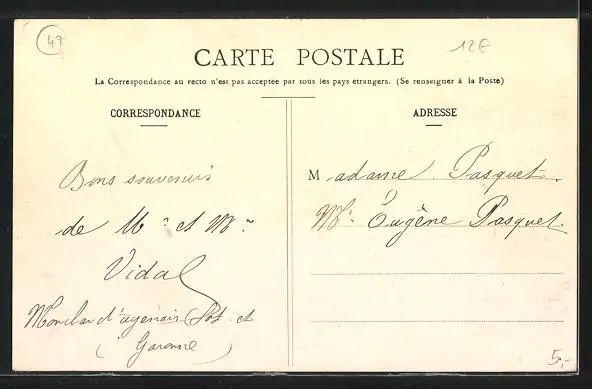 47
12E
CARTE POSTALE
La Correspondance au recto n'est pas acceptée par tous les pays étrangers. (Se renseigner à la Poste)
CORRESPONDANCE
Bons souvenirs
de Mr et Mme
Vidal
Monclar d'agenais (Lot et
Garonne)
ADRESSE
Madame Pasquet
Mr Eugène Pasquet
5,-